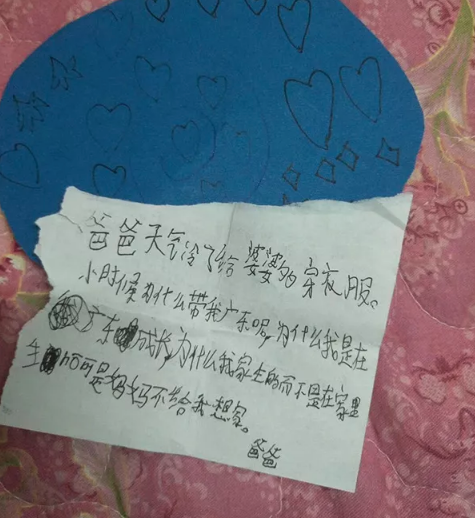 爸爸天气冷了给婆婆多穿衣服。
小时候为什么带我广东呢,为什么我是在
广东成长,为什么我家生的而不是在家里
生 可是妈妈不给我想家。
爸爸